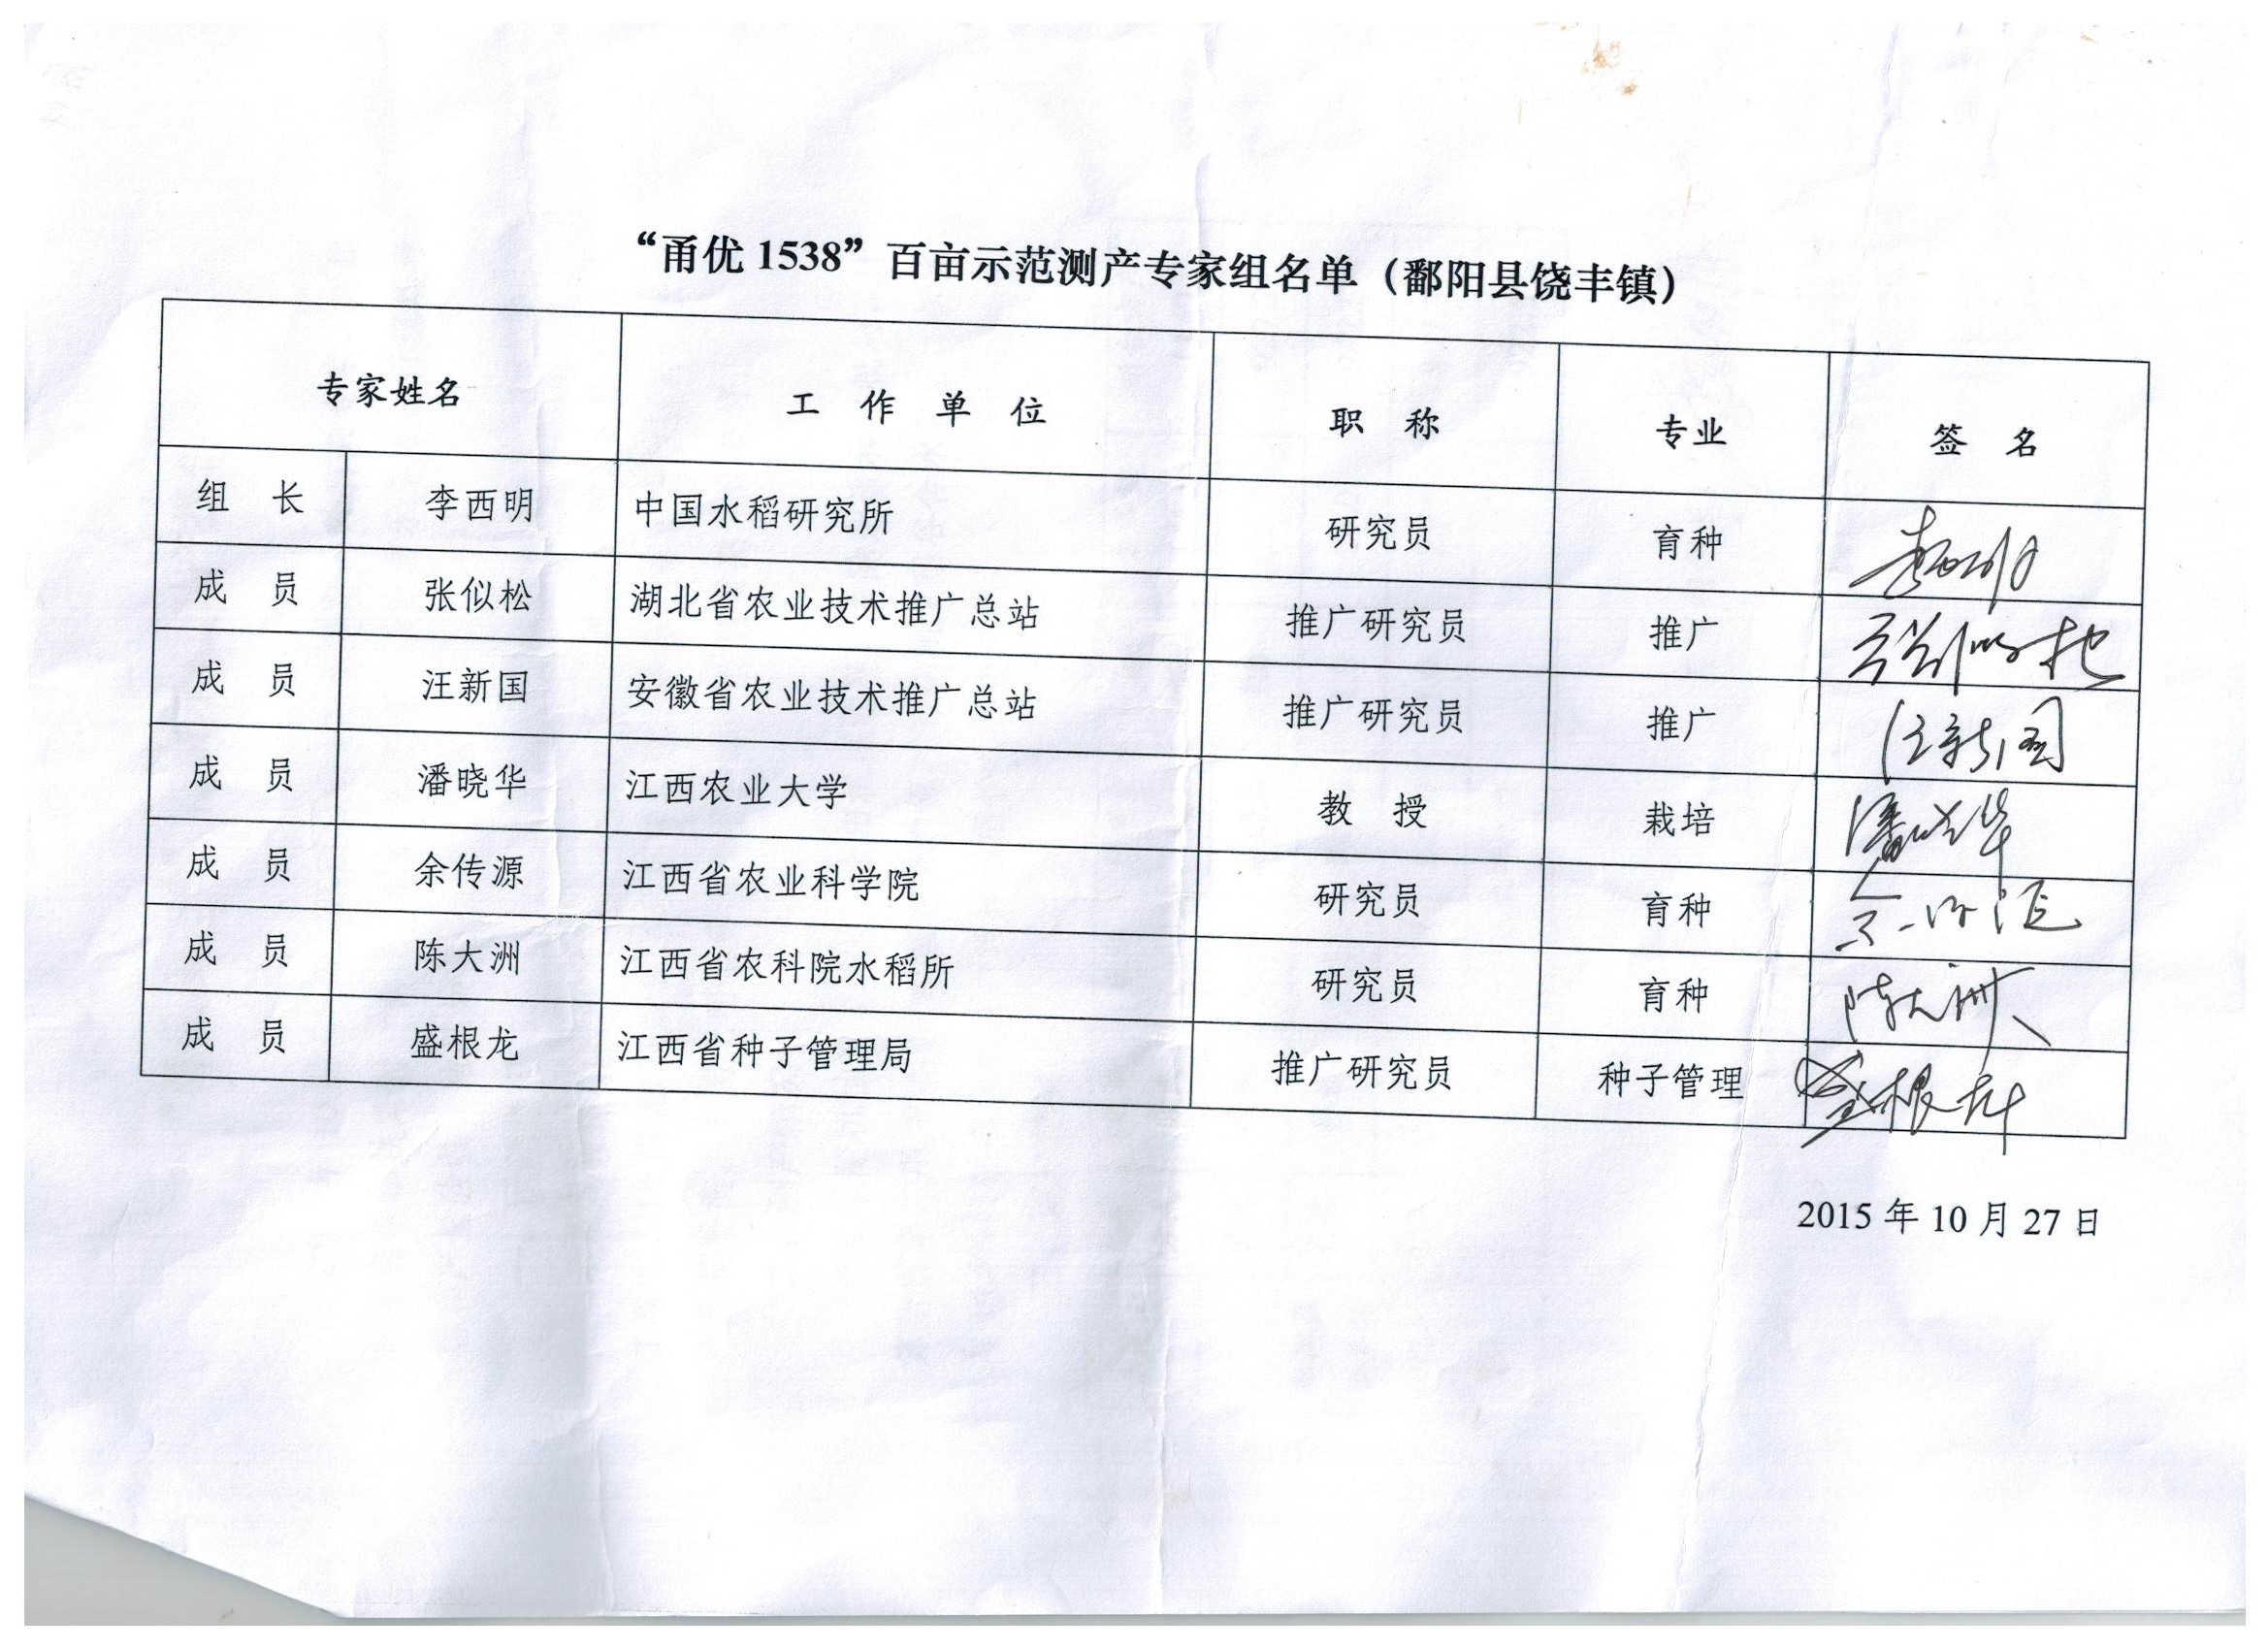 “甬优 1538”百亩示范测产专家组名单（鄱阳县饶丰镇）
专家姓名 工 作 单 位 职 称 专业 签 名
组 长 李西明 中国水稻研究所 研究员 育种 李西明
成 员 张似松 湖北省农业技术推广总站 推广研究员 推广 张似松
成 员 汪新国 安徽省农业技术推广总站 推广研究员 推广 汪新国
成 员 潘晓华 江西农业大学 教 授 栽培 潘晓华
成 员 余传源 江西省农业科学院 研究员 育种 余传源
成 员 陈大洲 江西省农科院水稻所 研究员 育种 陈大洲
成 员 盛根龙 江西省种子管理局 推广研究员 种子管理 盛根龙
2015 年 10 月 27 日